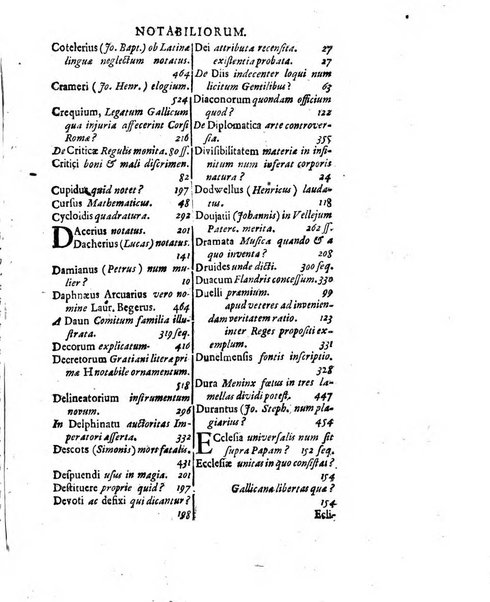 NOTABILIORUM.
Cotelerius (Jo. Bapt.) ob Latinæ
linguæ neglectum notatus.
464
Crameri (Jo. Henr.) elogium.
524
Crequium, Legatum Gallicum
qua injuria affecerint Corsi
Romæ? 216
De Criticæ Regulis monita. 80 ss.
Critici boni & mali discrimen.
82
Cupidus quid notet? 197
Cursus Mathematicus. 48
Cycloidis quadratura. 292
DAcerius notatus. 201
Dacherius (Lucas) notatus.
141
Damianus (Petrus) num mu-
lier? 160
Daphnæus Arcuarius vero no-
mine Laur. Begerus. 464
A Daun Comitum familia illu-
strata. 319 seq.
Decorum explicatum. 416
Decretorum Gratiani literæ pri-
mæ H notabile ornamentum.
518
Delineatorium instrumentum
novum. 296
In Delphinatu auctoritas Im-
peratori asserta. 332
Descots (Simonis) mors fatalis.
431
Despuendi usus in magia. 201
Destituere proprie quid? 197
Devoti ac defixi qui dicantur?
198
Dei attributa recensita. 27
existentia probata. 27
De Diis indecenter loqui num
licitum Gentilibus? 63
Diaconorum quondam officium
quod? 122
De Diplomatica arte controver-
sia. 355
Divisibilitatem materiæ in infi-
nitum num inferat corporis
natura? 24
Dodwellus (Henricus) lauda-
tus. 118
Doujatii (Johannis) in Vellejum
Paterc. merita. 262 ss.
Dramata Musica quando & a
quo inventa? 208
Druides unde dicti. 300 seq.
Duacum Flandris concessum. 330
Duelli præmium. 99
apud veteres ad invenien-
dam veritatem ratio. 123
inter Reges propositi ex-
emplum. 331
Dunelmensis fontis inscriptio.
328
Dura Meninx fœtus in tres la-
mellas dividi potest. 447
Durantus (Jo. Steph.) num pla-
giarius? 454
ECclesia universalis num sit
supra Papam? 152 seq.
Ecclesiæ unitas in quo consistat?
154
Gallicana libertas quæ?
154
Ecli-